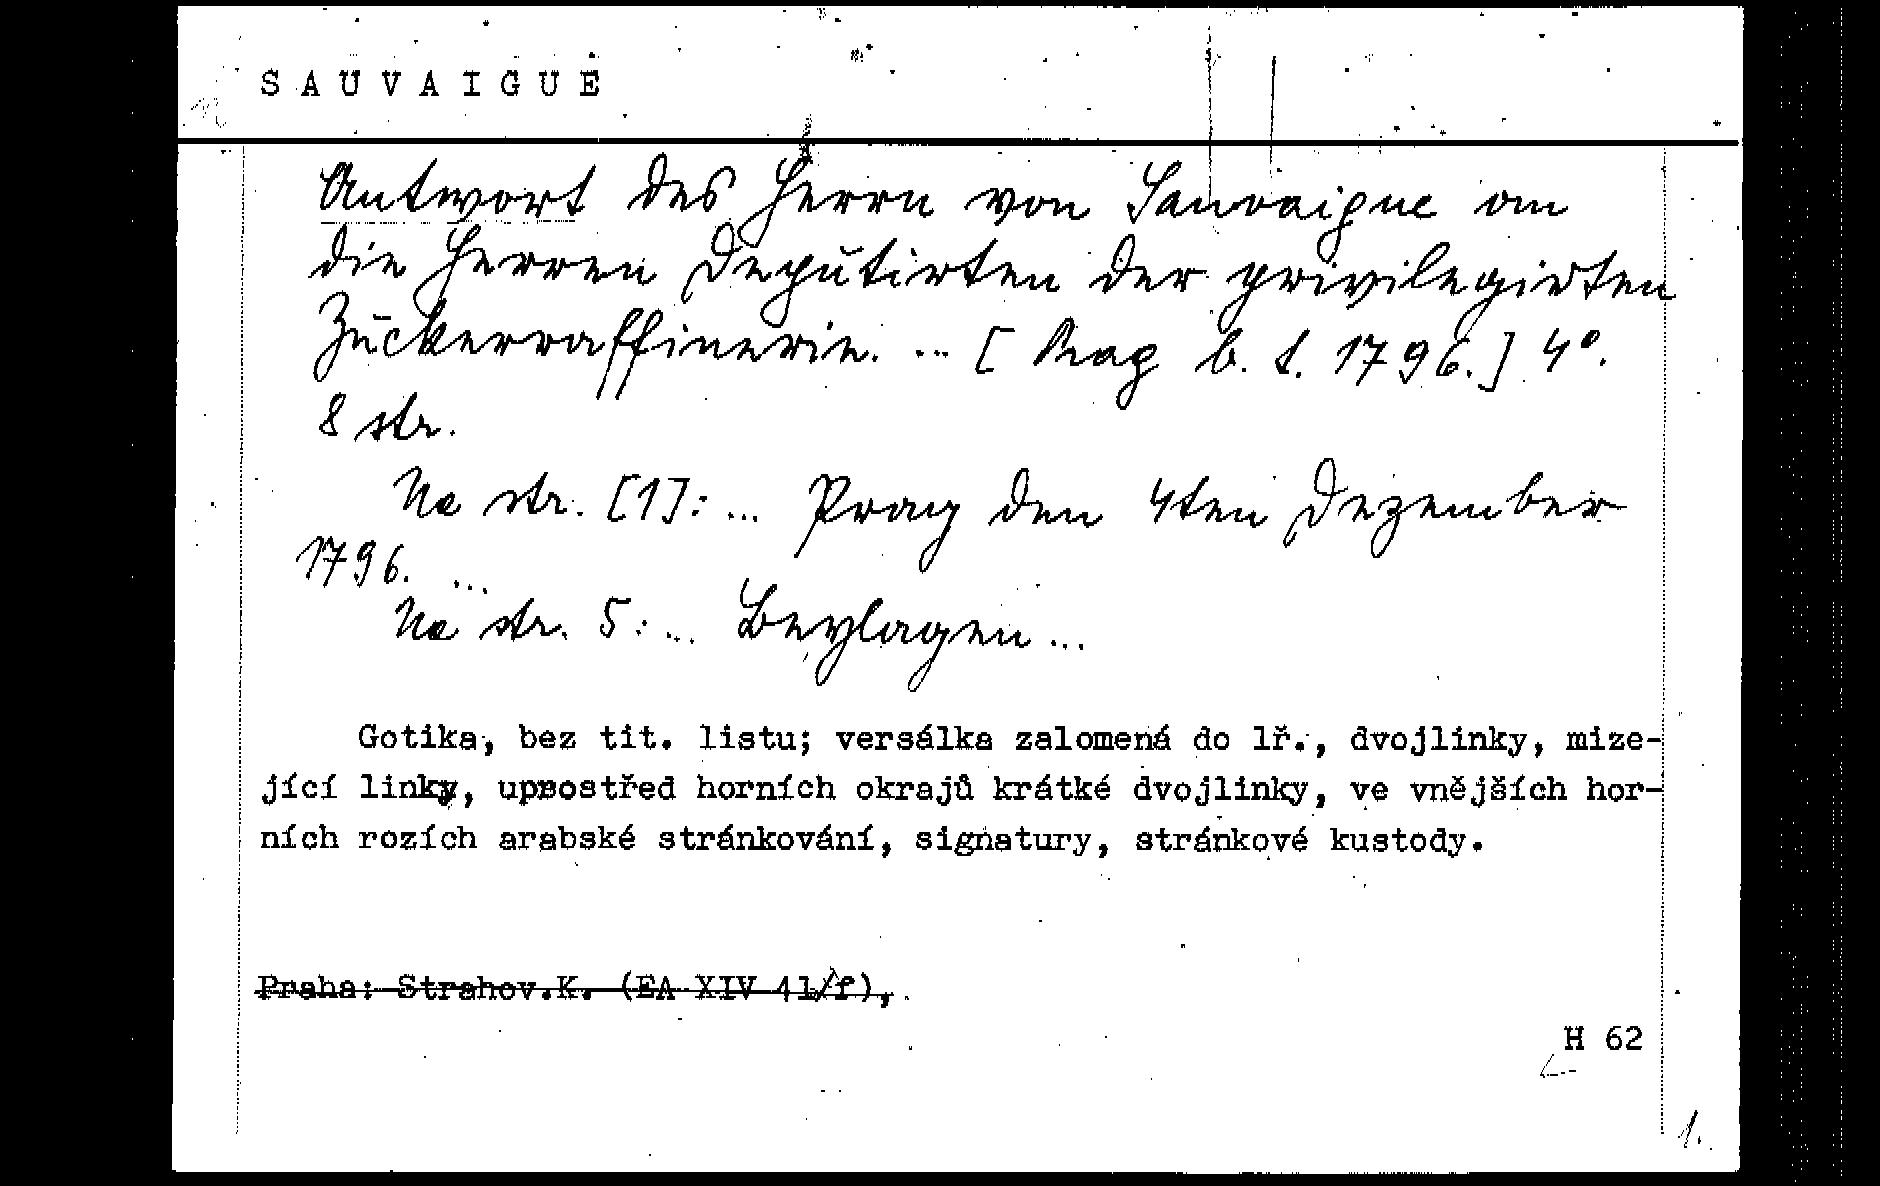 SAUVAIGUE
Antwort des Herrn von Sauvaigue an
die Herren Deputirten der privilegirten
Zuckerraffinerie. ... [Prag b. t. 1796.] 4°.
8 str.
Na str. [1]: ... Prag den 4ten Dezember
1796. ...
Na str. 5: ... Beylagen ...
Gotika, bez tit. listu; versálka zalomená do 1ř., dvojlinky, mize-
jící linky, uprostřed horních okrajů krátké dvojlinky, ve vnějších hor-
ních rozích arabské stránkování, signatury, stránkové kustody.
Praha: Strahov.K. (EA XIV 41/f),
H 62
1.